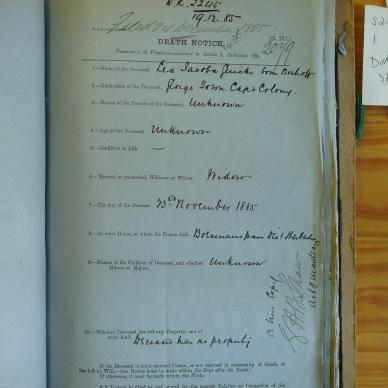 N.R. 2245
19.12.85
Filed 24 December 1885
DEATH NOTICE,
(G. 271.)
2079
Pursuant to the Provisions contained in Section 9, Ordinance 104.
1.—Name of the Deceased. Lea Jacoba born Boshoff
2.—Birthplace of the Deceased. George Town, Cape Colony.
3.—Names of the Parents of the Deceased. Unknown
4.—Age of the Deceased. Unknown
5.—Condition in Life. —
6.—Married or unmarried, Widower or Widow. Widow
7.—The day of the Decease. 23rd November 1885
8.—At what House, or where the Person died. Dist Herbert
9.—Names of the Children of Deceased, and whether Unknown
Minors or Majors.
a true Copy
10.—Whether Deceased has left any Property, and of
what kind. Deceased has no property
If the Deceased is not a married Person, or not married in community of Goods, or
has left no Will,—this Notice must be made within Six Days after the Death.
If otherwise, it must be made within Six Weeks.